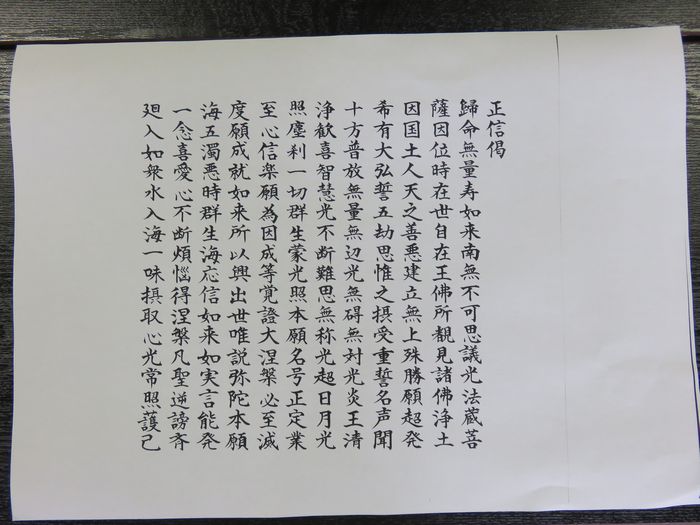 正信偈
歸命無量寿如来南無不可思議光法蔵菩
薩因位時在世自在王佛所覩見諸佛浄土
因国土人天之善悪建立無上殊勝願超発
希有大弘誓五劫思惟之摂受重誓名声聞
十方普放無量無辺光無碍無対光炎王清
浄歓喜智慧光不断難思無称光超日月光
照塵刹一切群生蒙光照本願名号正定業
至心信楽願為因成等覚證大涅槃必至滅
度願成就如来所以興出世唯説弥陀本願
海五濁悪時群生海応信如来如実言能発
一念喜愛心不断煩悩得涅槃凡聖逆謗斉
廻入如衆水入海一味摂取心光常照護已